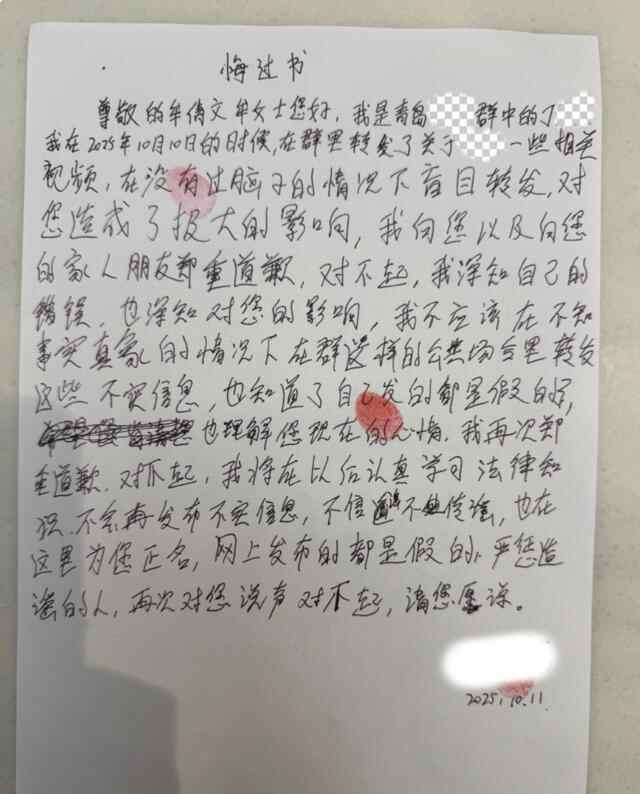 悔过书
尊敬的牟倩文牟女士您好，我是青岛 群中的丁
我在2025年10月10日的时候，在群里转发了关于 一些相关
视频，在没有过脑子的情况下盲目转发，对
您造成了极大的影响，我向您以及向您
的家人朋友郑重道歉，对不起，我深知自己的
错误，也深知对您的影响，我不应该在不知
事实真象的情况下在群这样的公共场合里转发
这些不实信息，也知道了自己发的都是假的，
也理解您现在的心情，我再次郑
重道歉，对不起，我将在以后认真学习法律知
识，不会再发布不实信息，不信 不 传谣，也在
这里为您正名，网上发布的都是假的，严惩造
谣的人，再次对您说声对不起，请您原谅。
2025.10.11